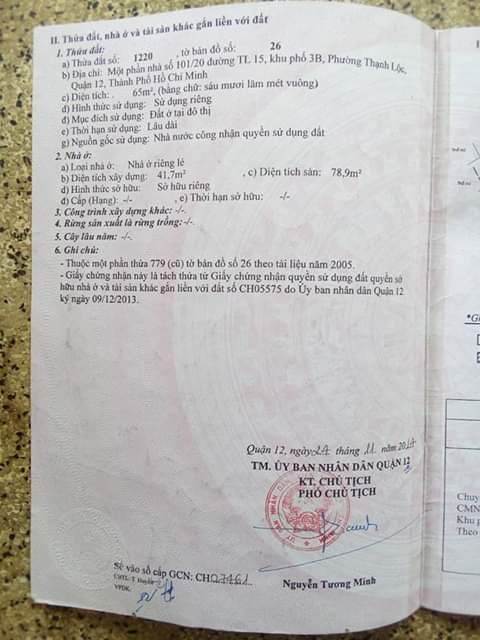 II. Thửa đất, nhà ở và tài sản khác gắn liền với đất
1. Thửa đất:
a) Thửa đất số: 1220 , tờ bản đồ số: 26
b) Địa chỉ: Một phần nhà số 101/20 đường TL 15, khu phố 3B, Phường Thạnh Lộc,
Quận 12, Thành Phố Hồ Chí Minh
c) Diện tích: . 65m², (bằng chữ: sáu mươi lăm mét vuông)
d) Hình thức sử dụng: Sử dụng riêng
đ) Mục đích sử dụng: Đất ở tại đô thị
e) Thời hạn sử dụng: Lâu dài
g) Nguồn gốc sử dụng: Nhà nước công nhận quyền sử dụng đất
2. Nhà ở:
a) Loại nhà ở: Nhà ở riêng lẻ
b) Diện tích xây dựng: 41,7m² , c) Diện tích sàn: 78,9m²
d) Hình thức sở hữu: Sở hữu riêng
đ) Cấp (Hạng): -/- , e) Thời hạn sở hữu: -/-
3. Công trình xây dựng khác: -/-.
4. Rừng sản xuất là rừng trồng: -/-
5. Cây lâu năm: -/-.
6. Ghi chú:
- Thuộc một phần thửa 779 (cũ) tờ bản đồ số 26 theo tài liệu năm 2005.
- Giấy chứng nhận này là tách thửa từ Giấy chứng nhận quyền sử dụng đất quyền sở
hữu nhà ở và tài sản khác gắn liền với đất số CH05575 do Ủy ban nhân dân Quận 12
ký ngày 09/12/2013.
Quận 12, ngày tháng 11 năm
TM. ỦY BAN NHÂN DÂN QUẬN 12
KT. CHỦ TỊCH
PHÓ CHỦ TỊCH
Nguyễn Tương Minh
Số vào sổ cấp GCN: CH07461
VPĐK.
Chuy
CMN
Khu p
Theo